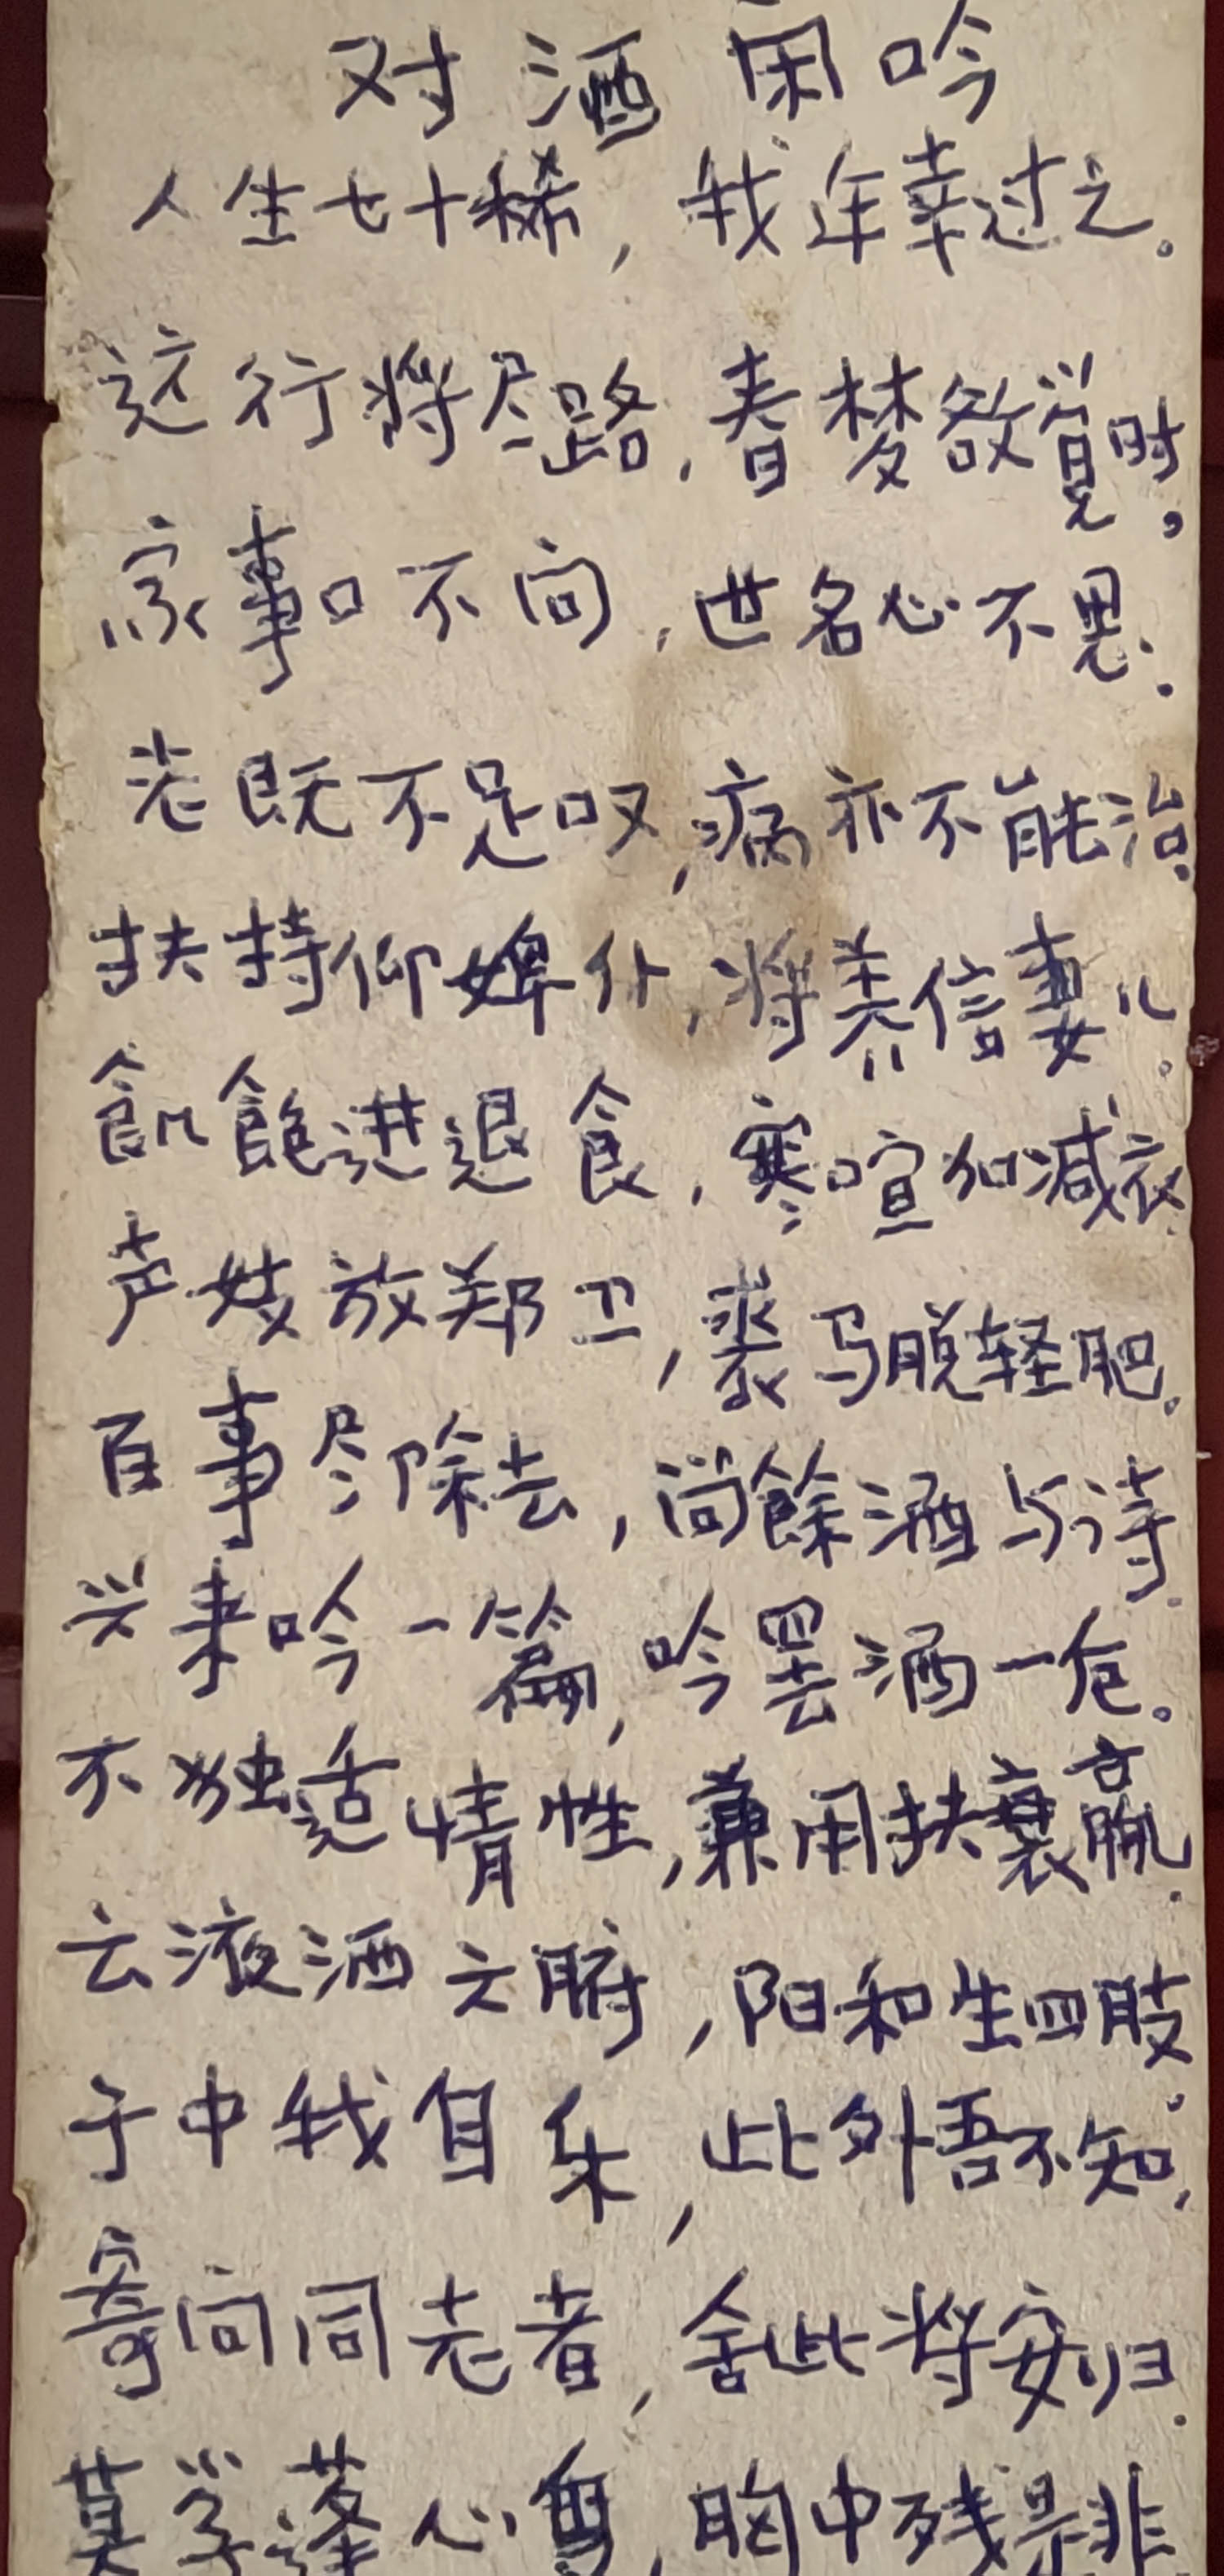 对酒闲吟
人生七十稀，我年幸过之。
远行将尽路，春梦欲覚时。
家事口不问，世名心不思。
老既不足叹，病亦不能治。
扶持仰婢仆，将养信妻儿。
飢飽进退食，寒喧加减衣
声妓放郑卫，裘马脱轻肥。
百事尽除去，尚餘酒与诗.
兴来吟一篇，吟罢酒一卮。
不独适情性，兼用扶衰羸.
云液洒六腑，阳和生四肢.
于中我自乐，此外吾不知.
寄问同老者，舍此将安归.
莫学蓬心叟，胸中残是非